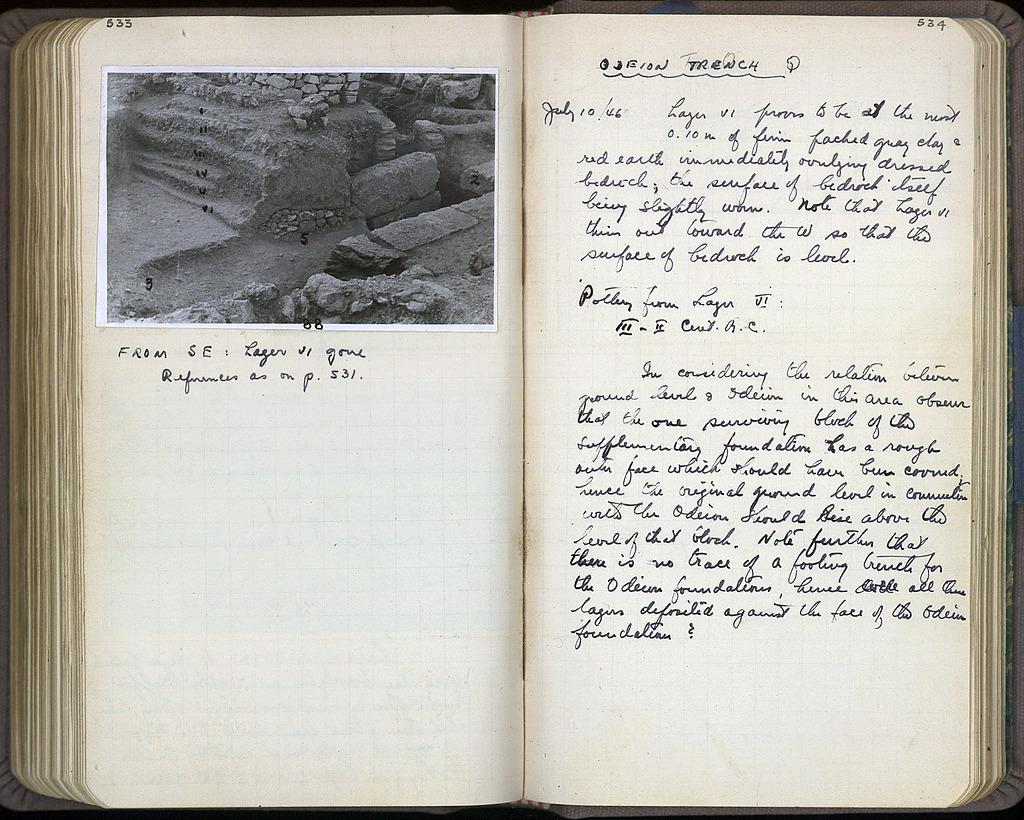 533
I
II
III
IV
V
VI
2
5
3
88
FROM SE : Layer VI gone
References as on p. 531.
534
ODEION TRENCH
July 10/46 Layer VI proves to be at the most
0.10 m of firm packed gray clay &
red earth immediately overlying dressed
bedrock; the surface of bedrock itself
being slightly worn. Note that Layer VI
thins out toward the W so that the
surface of bedrock is level.
Pottery from Layer VI :
III - II Cent. B.C.
In considering the relation between
ground level & Odeion in this area observe
that the one surviving block of the
supplementary foundation has a rough
outer face which should have been covered;
hence the original ground level in connection
with the Odeion should rise above the
level of that block. Note further that
there is no trace of a footing trench for
the Odeion foundations, hence all these
layers deposited against the face of the Odeion
foundation ?